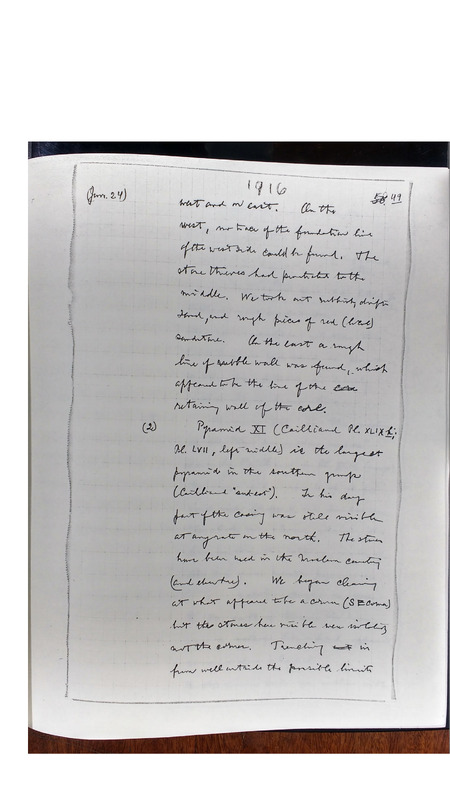 1916
(Jan. 24) 58 49
west and on east. On the
west, no trace of the foundation line
of the west side could be found. The
stone thieves had penetrated to the
middle. We took out rubbish, drift
sand, and rough pieces of red (local)
sandstone. On the east a rough
line of rubble wall was found, which
appeared to be the line of the
retaining wall of the core.
(2) Pyramid XI (Cailliaud Pl. XLIX
Pl. LVII, left middle) is the largest
pyramid in the southern group
(Cailliaud "sud-est"). In his day
part of the casing was still visible
at any rate on the north. The stones
have been used in the Moslem cemetery
(and elsewhere). We began clearing
at what appeared to be a corner (SE corner)
but the stones here visible were
not the corner. Trenching in
from well outside the possible limits